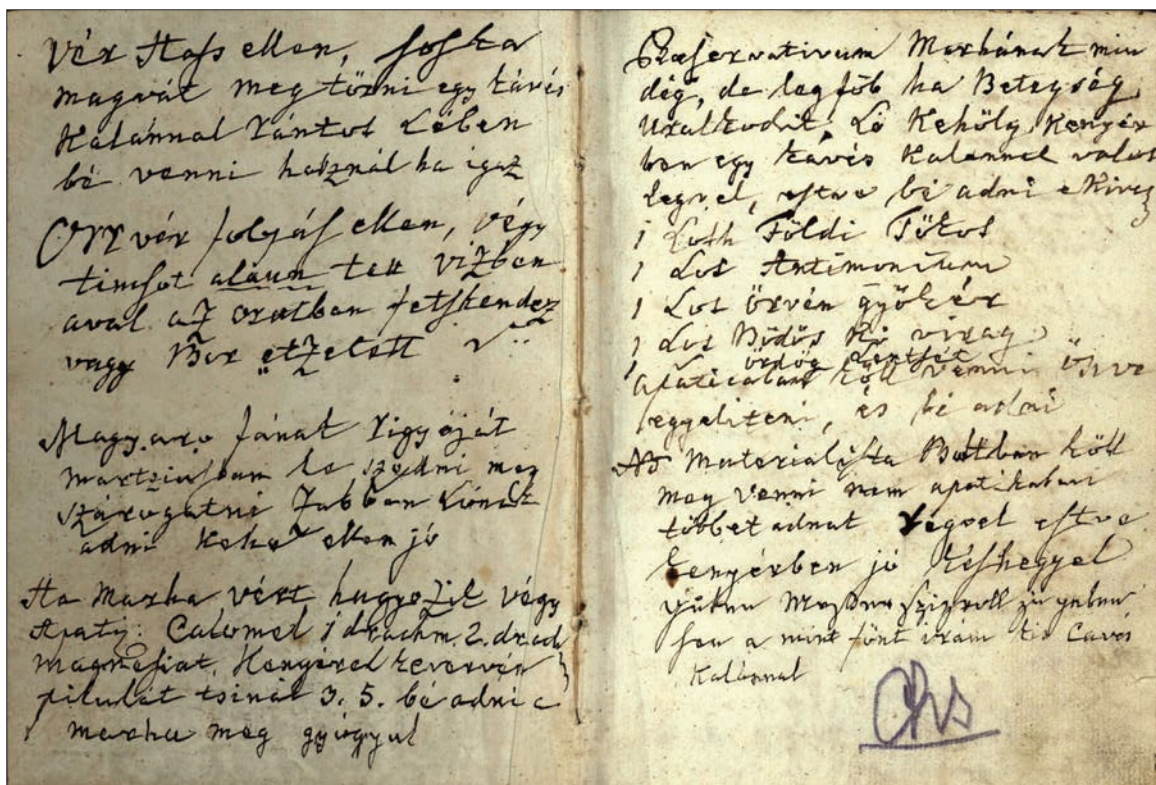 Vér Hass ellen, soska
magvát meg törni egy kávés
Kalánnal Rántos Lében
bé venni használ ha igaz
Orr vér folyás ellen, végy
timsot alaun tett vizben
aval az orrotban fetskendez
vagy Bor etzetett
Magyaro fának Rigyóját
martziusban le szedni meg
szárogatni Zabban Lónak
adni Kehe ellen jó
Ha Marha vért hugyozik végy
Apaty: Calomel 1 drachm. 2. drach
magnesiat, Kenyérel kevervén
pilulát tsinát 3. 5. bé adni a
marha meg gyógyul
Praeservativum Marhának min
dég, de legföb ha Betegség
Uralkodik, Ló Kehölg Kenyér
ben egy kávés Kalánnel
regvel, estve bé adni
1 Loth Földi Tökös
1 Lot Antimonium
1 Lot örvén gyökér
1 Lot Büdös Kö virag
1 ördög Lentsét
apaticaban köll venni ösve
egyeliteni, és bé adni
NB Materialista Boltban köll
meg venni nem apatikaban
többet adnak Regvel estve
kenyérben jó késhegyel
a mint fönt irám kis Cavés
Kalánnal